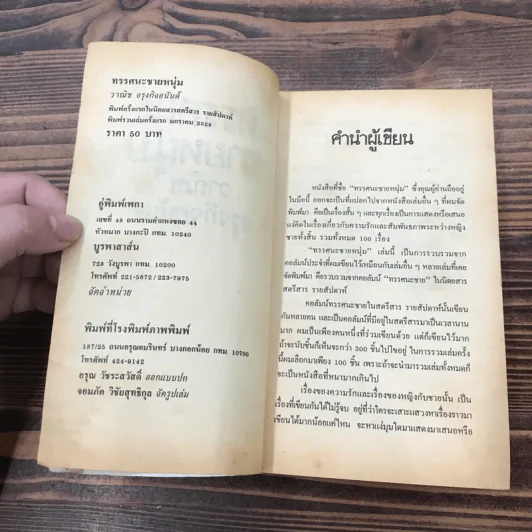 ทรรศนะชายหนุ่ม
วาณิช จรุงกิจอนันต์
พิมพ์ครั้งแรกในนิตยสารสตรีสาร รายสัปดาห์
พิมพ์รวมเล่มครั้งแรก มกราคม 2528
ราคา 50 บาท
คู่พิมพ์เพกา
เลขที่ 46 ถนนรามคำแหงซอย 44
หัวหมาก บางกะปิ กทม. 10240
บูรพาสาส์น
728 วังบูรพา กทม. 10200
โทรศัพท์ 221-5672/223-7975
จัดจำหน่าย
พิมพ์ที่โรงพิมพ์ภาพพิมพ์
187/25 ถนนอรุณอมรินทร์ บางกอกน้อย กทม. 10700
โทรศัพท์ 424-9142
อรุณ วัชระสวัสดิ์ ออกแบบปก
จอมภัค วิชัยสุทธิกุล จัดรูปเล่ม
คำนำผู้เขียน
หนังสือที่ชื่อ "ทรรศนะชายหนุ่ม" ซึ่งคุณผู้อ่านถืออยู่
ในมือนี้ ออกจะเป็นที่แปลกไปจากหนังสือเล่มอื่น ๆ ที่ผมจัด
พิมพ์มา คือเป็นเรื่องสั้น ๆ และทุกเรื่องเป็นการแสดงหรือเสนอ
แง่คิดในเรื่องเกี่ยวกับความรักและสัมพันธภาพระหว่างหญิง
ชายทั้งสิ้น รวมทั้งหมด 100 เรื่อง
"ทรรศนะชายหนุ่ม" เล่มนี้ เป็นการรวบรวมจาก
คอลัมน์ประจำที่ผมเขียนไว้เหมือนกับเล่มอื่น ๆ หลายเล่มที่เคย
จัดพิมพ์มา คือรวบรวมจากคอลัมน์ "ทรรศนะชาย" ในนิตยสาร
สตรีสาร รายสัปดาห์
คอลัมน์ทรรศนะชายในสตรีสาร รายสัปดาห์นั้นเขียน
กันหลายคน และเป็นคอลัมน์ที่มีอยู่ในสตรีสารมาเป็นเวลานาน
มาก ผมเป็นเพียงคนหนึ่งที่ร่วมเขียนด้วย แต่ก็เขียนไว้มาก
ถ้าจะนับชิ้นก็เห็นจะกว่า 300 ชิ้นไปไซอยู่ ในการรวมเล่มครั้ง
นี้ผมเลือกมาเพียง 100 ชิ้น เพราะถ้าจะนำมารวมเล่มทั้งหมดก็
จะเป็นหนังสือที่หนามากเกินไป
เรื่องของความรักและเรื่องของหญิงกับชายนั้น เป็น
เรื่องที่เขียนกันได้ไม่รู้จบ อยู่ที่ว่าใครจะเสาะแสวงหาเรื่องราวมา
เขียนได้มากน้อยแค่ไหน จะหาแง่มุมใดมาแสดงมาเสนอหรือ